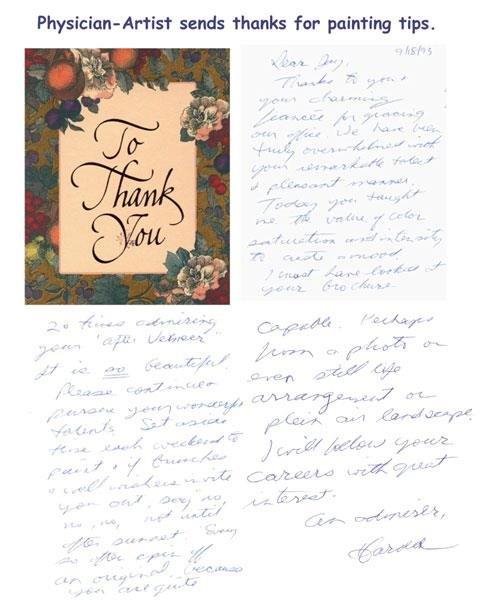 Physician-Artist sends thanks for painting tips.
To
Thank
You
9/18/93
Dear Guy,
Thanks to you &
your charming
fiancee for gracing
our office. We have been
truly overwhelmed with
your remarkable talent
& pleasant manner.
Today you taught
me the value of color
saturation and intensity
to create a mood.
I must have looked at
your brochure
20 times admiring
your "after Vermeer".
It is so beautiful.
Please continue
pursue your wonderful
talents. Set aside
time each weekend to
paint & if
well wishers invite
you out, say no,
no, no, not until
after sunset.
so often
an original because
you are quite
capable. Perhaps
from a photo or
even still life
arrangement or
plein air landscape.
I will follow your
careers with great
interest.
An admirer,
Harold